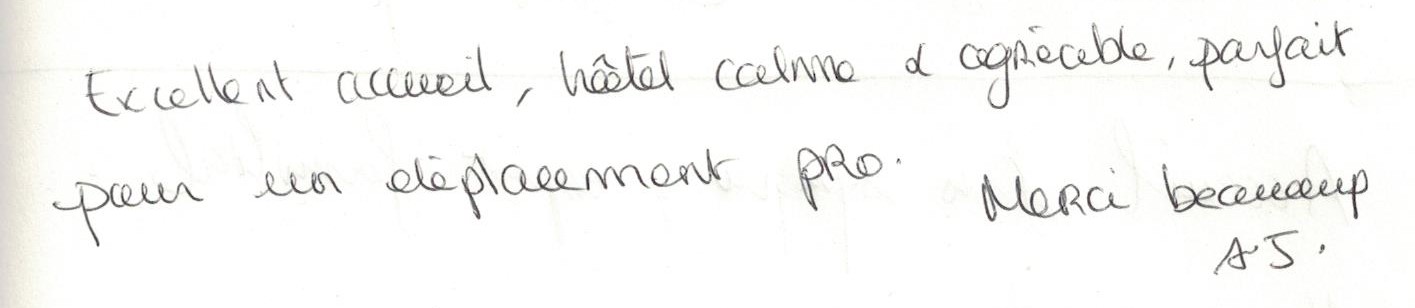 Excellent accueil, hôtel calme & agréable, parfait
pour un déplacement pro. Merci beaucoup
A.J.